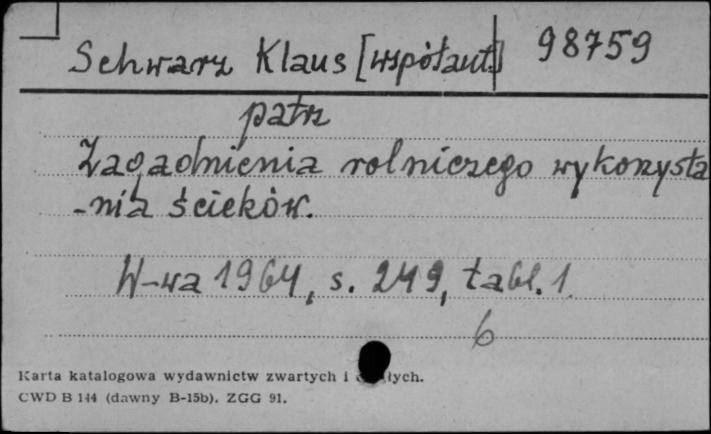 Schwarz Klaus [współaut.] 98759
patrz
Zagadnienia rolniczego wykorzysta
-nia ścieków.
W-wa 1964, s. 249, tabl. 1
6
Karta katalogowa wydawnictw zwartych i
CWD B 144 (dawny B-15b). ZGG 91.